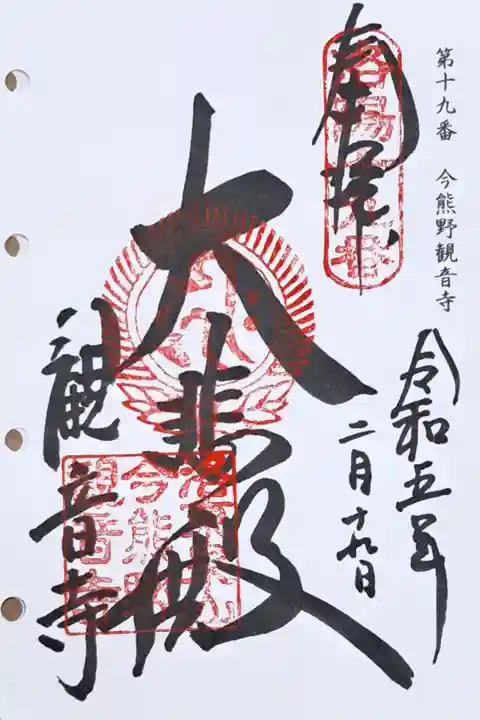 第十九番 今熊野観音寺
奉拝
令和五年
二月十九日
大悲殿
観音寺